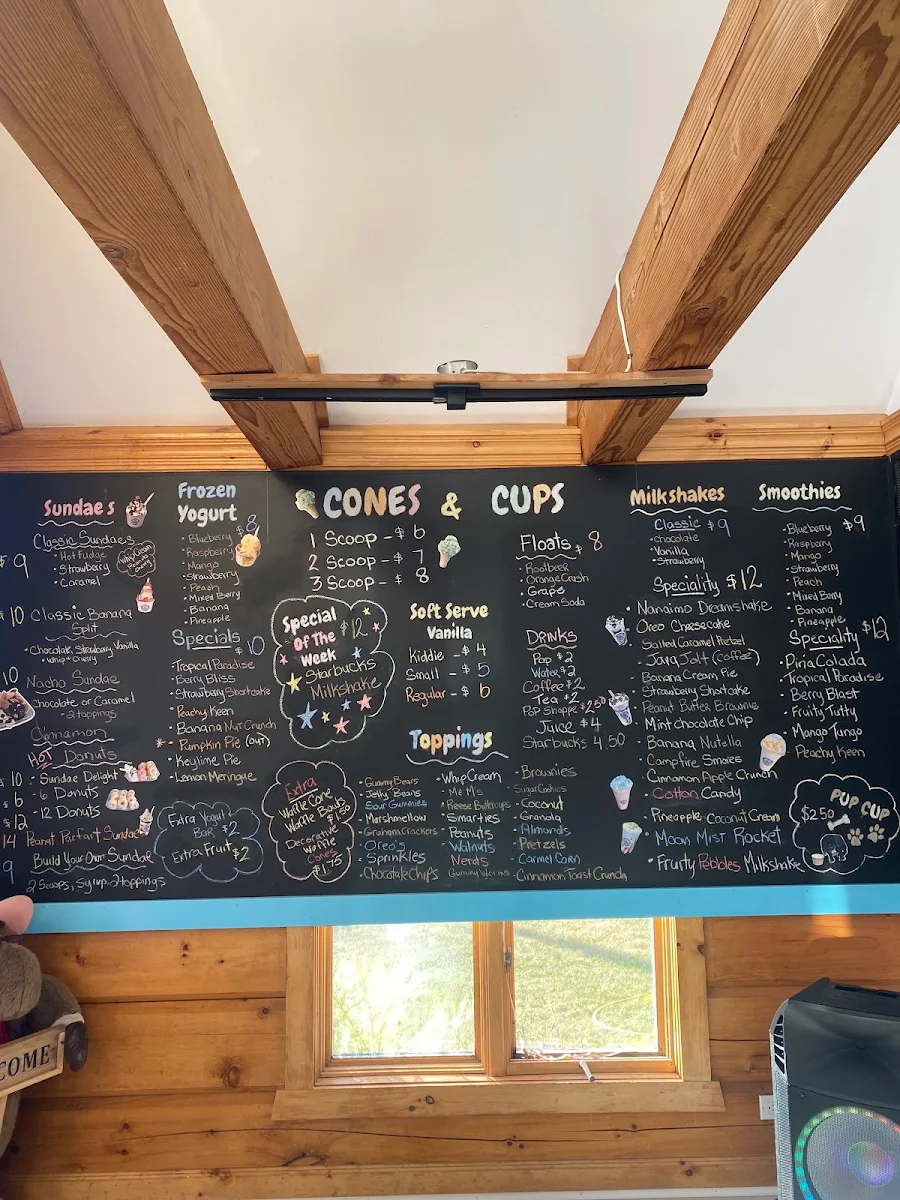 Sundaes
Classic Sundaes
$9
• Hot Fudge
• Strawberry
• Caramel
Whip Cream
$10 Classic Banana
Split
• Chocolate, Strawberry, Vanilla
• Whip + Cherry
10 Nacho Sundae
Chocolate or Caramel
2 toppings
Cinnamon
Hot Donuts
$10 • Sundae Delight
$6 6 Donuts
$12 12 Donuts
14 Peanut Parfait Sundae
9 Build Your Own Sundae
2 Scoops, Syrup + 2 toppings
Frozen
Yogurt
$8
• Blueberry
• Raspberry
• Mango
• Strawberry
• Peach
• Mixed Berry
• Banana
• Pineapple
Specials $10
• Tropical Paradise
• Berry Bliss
• Strawberry Shortcake
• Peachy Keen
• Banana Nut Crunch
• Pumpkin Pie (OUT)
• Keylime Pie
• Lemon Meringue
Extra Yogurt
Bar $2
Extra Fruit $2
CONES & CUPS
1 Scoop - $6
2 Scoop - $7
3 Scoop - $8
Special
Of The
Week
$12
Starbucks
Milkshake
Soft Serve
Vanilla
Kiddie - $4
Small - $5
Regular - $6
Extra
Waffle Cone
Waffle Bowls
$1.50
Decorative
Waffle
Cones
$1.75
Toppings
• Gummy Bears
• Jelly Beans
• Sour Gummies
• Marshmellow
• Graham Crackers
• Oreo's
• Sprinkles
• Chocolate Chips
• Whip Cream
• Me M's
• Reese Buttercups
• Smarties
• Peanuts
• Walnuts
• Nerds
• Gummy Worms
• Brownies
• Sugar Cookies
• Coconut
• Granola
• Almonds
• Pretzels
• Carmel Corn
• Cinnamon Toast Crunch
Floats $8
• Rootbeer
• Orange Crush
• Grape
• Cream Soda
DRINKS
Pop $2
Water $2
Coffee $2
Tea $2
Pop Shoppe $2.50
Juice $4
Starbucks 4.50
Milkshakes
Classic $9
• Chocolate
• Vanilla
• Strawberry
Speciality $12
• Nanaimo Dreamshake
• Oreo Cheesecake
• Salted Caramel Pretzel
• Java Jolt (Coffee)
• Banana Cream Pie
• Strawberry Shortcake
• Peanut Butter Brownie
• Mint chocolate Chip
• Banana Nutella
• Campfire Smores
• Cinnamon Apple Crunch
• Cotton Candy
• Pineapple Coconut Cream
• Moon Mist Rocket
• Fruity Pebbles Milkshake
Smoothies
$9
• Blueberry
• Raspberry
• Mango
• Strawberry
• Peach
• Mixed Berry
• Banana
• Pineapple
Speciality $12
• Pina Colada
• Tropical Paradise
• Berry Blast
• Fruity Tutty
• Mango Tango
• Peachy Keen
PUP CUP
$2.50
COME